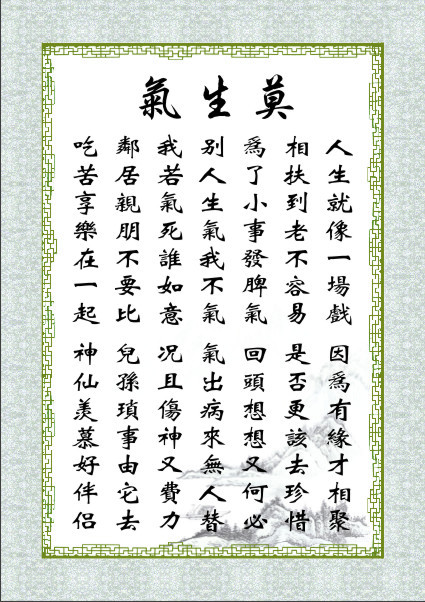 莫生氣
人生就像一場戲
因爲有緣才相聚
相扶到老不容易
是否更該去珍惜
爲了小事發脾氣
回頭想想又何必
別人生氣我不氣
氣出病來無人替
我若氣死誰如意
況且傷神又費力
鄰居親朋不要比
兒孫瑣事由它去
吃苦享樂在一起
神仙羨慕好伴侶